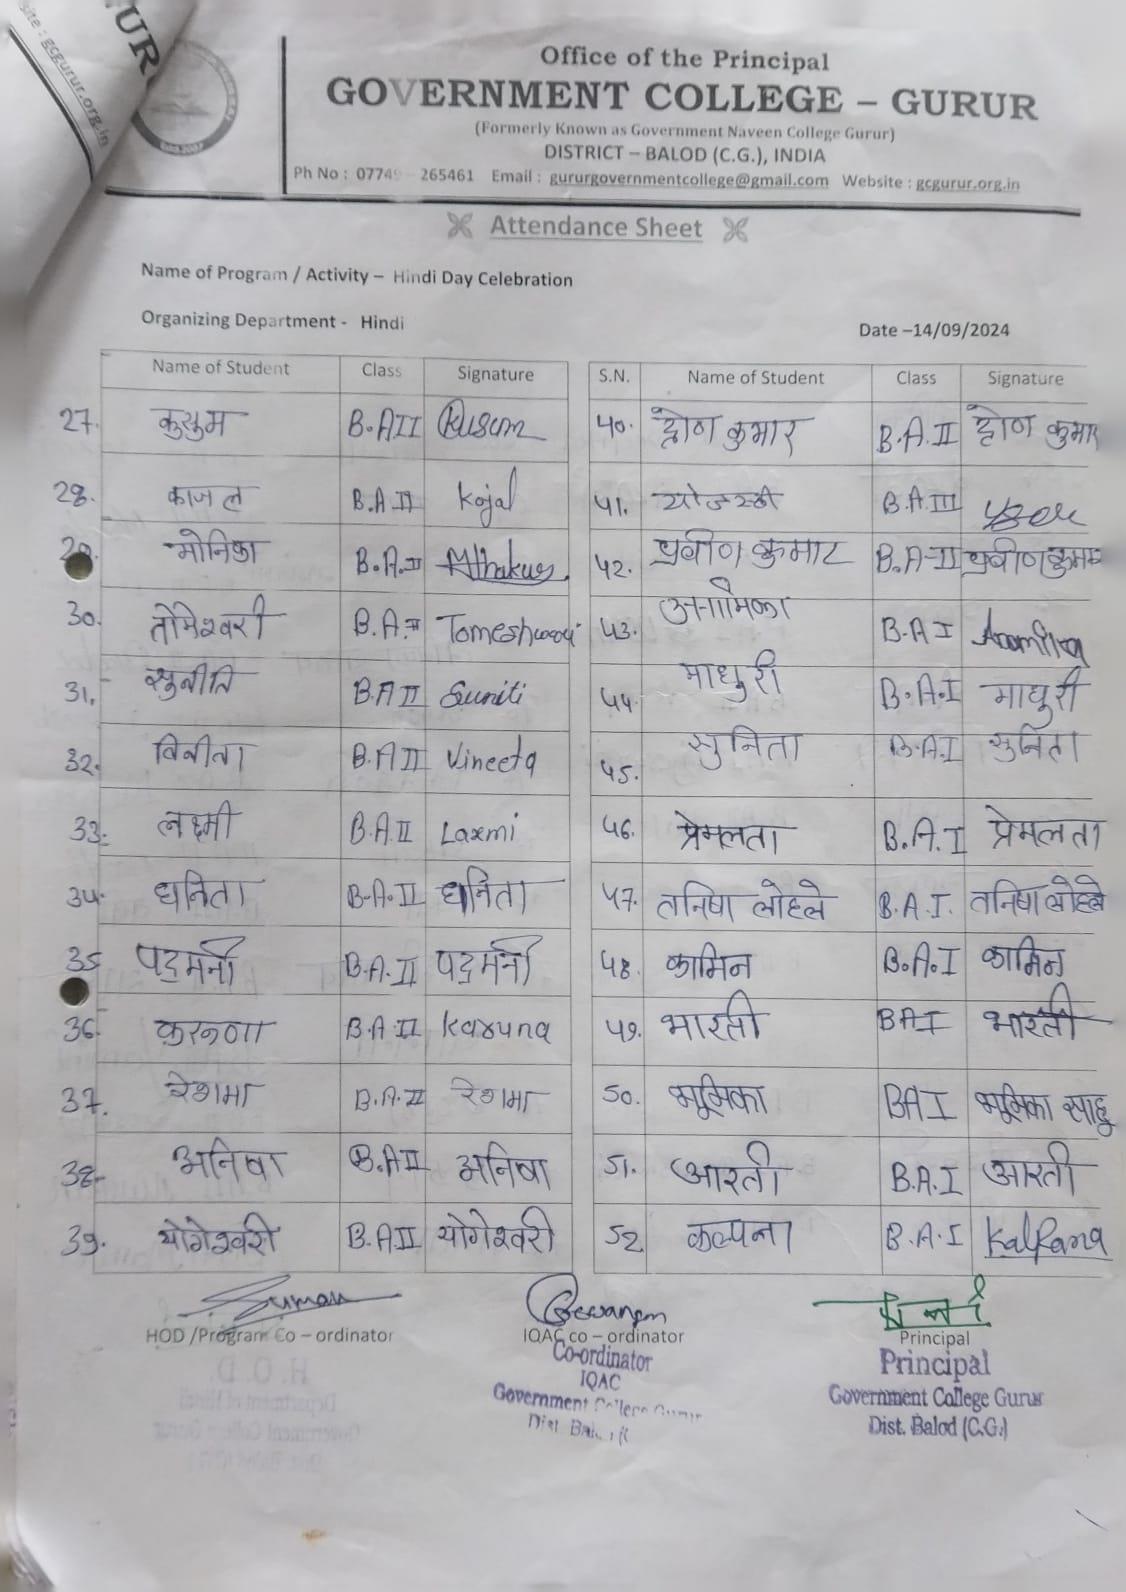 URUR
site : gcgurur.org.in
Office of the Principal
GOVERNMENT COLLEGE – GURUR
(Formerly Known as Government Naveen College Gurur)
DISTRICT – BALOD (C.G.), INDIA
Ph No : 07749 - 265461 Email : gururgovernmentcollege@gmail.com Website : gcgurur.org.in
Attendance Sheet
Name of Program / Activity – Hindi Day Celebration
Organizing Department - Hindi
Date –14/09/2024
Name of Student Class Signature S.N. Name of Student Class Signature
27. कुसुम B.A II Kusum 40. द्रोण कुमार B.A.II द्रोण कुमार
28. काजल B.A II Kajal 41. B.A.III
29. मोनिका B.A.II Mthakur 42. प्रवीण कुमार B.A-II प्रवीण कुमार
30. तोमेश्वरी B.A.II Tomeshwari 43. अनामिका B.A I Anamika
31. सुनीति B.A II Suniti 44. माधुरी B.A.I माधुरी
32. विनीता B.A II Vineeta 45. सुनिता B.A.I सुनिता
33. लक्ष्मी B.A.II Laxmi 46. प्रेमलता B.A.I प्रेमलता
34. धनिता B.A.II धनिता 47. तनिषा लोहले B.A.I. तनिषा लोहले
35 पद्मनी B.A.II पद्मनी 48. कामिन B.A.I कामिन
36. करूणा B.A II Karuna 49. भारती BAI भारती
37. रेशमा B.A.II रेशमा 50. भूमिका BA I भूमिका साहू
38. अनिषा B.A II अनिषा 51. आरती B.A.I आरती
39. योगेश्वरी B.A II योगेश्वरी 52 कल्पना B.A.I Kalpana
Suman Dewangan
HOD /Program Co – ordinator IQAC co – ordinator Principal
Co-ordinator
IQAC
Government College Gurur
Dist Balod
Principal
Government College Gurur
Dist. Balod (C.G.)